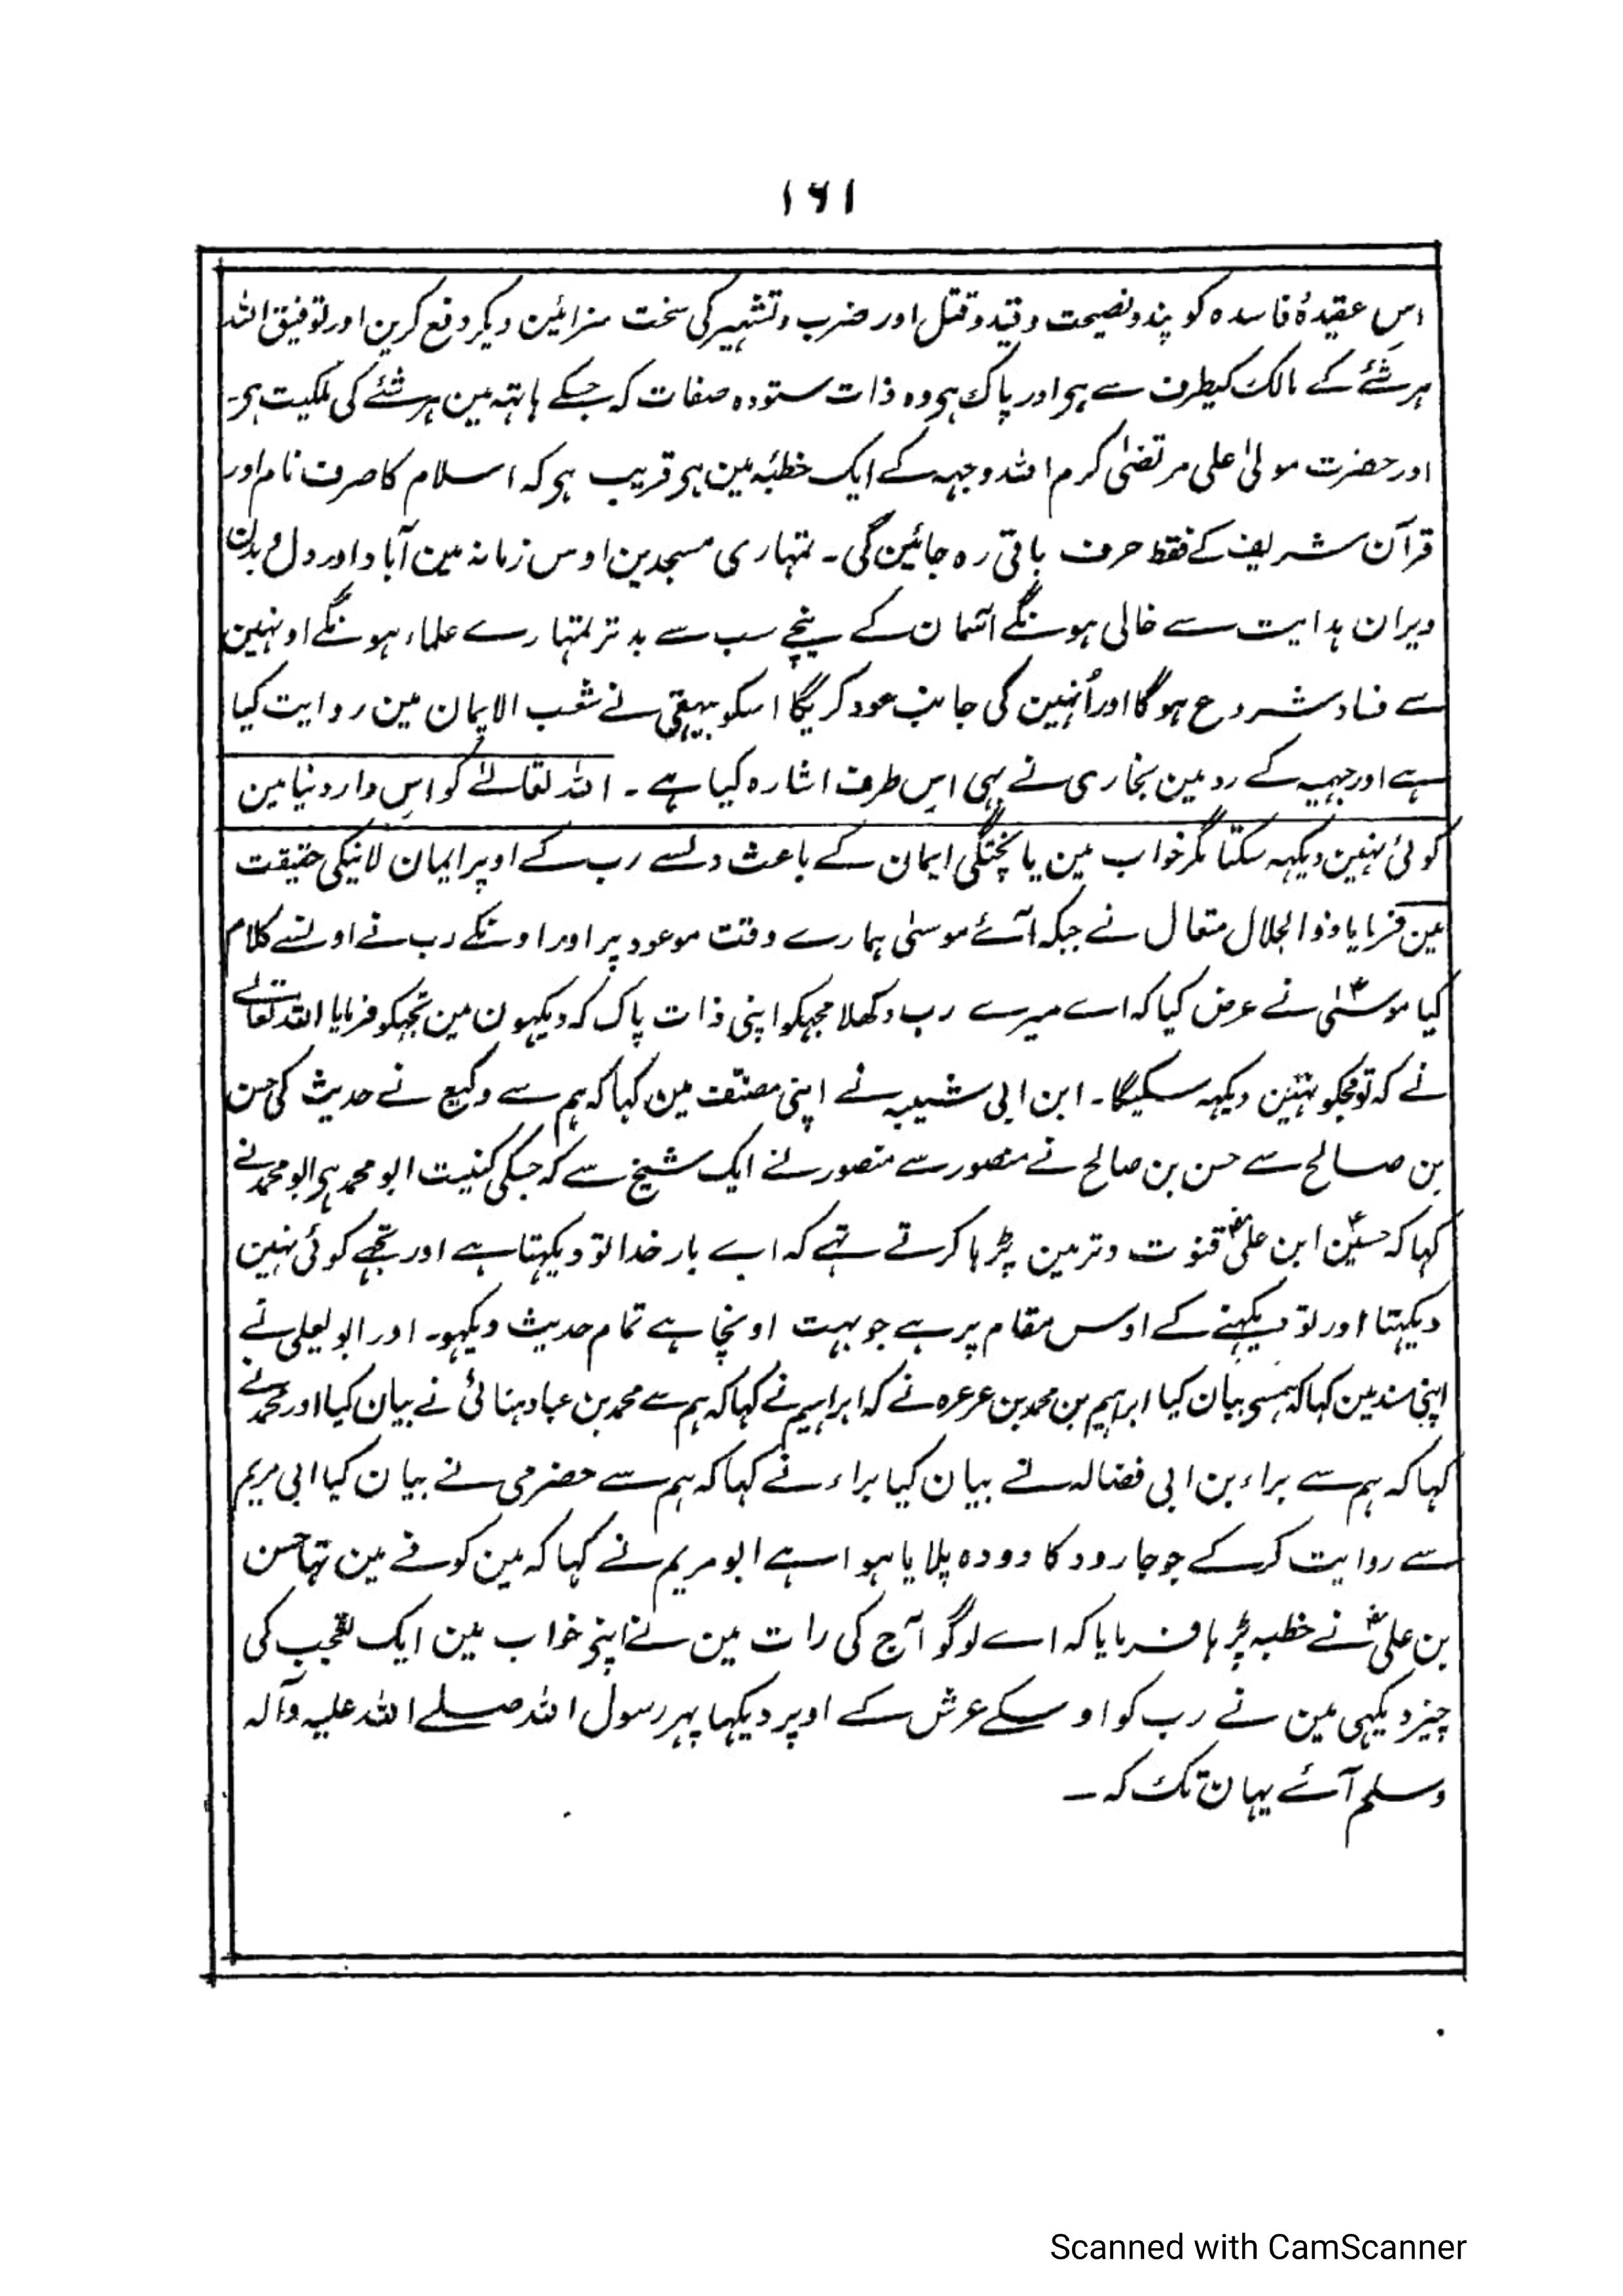 ۱۶۱
اسِ عقیدۂ فاسدہ کو پندونصیحت وقیدوقتل اور ضرب وتشہیر کی سخت سزائین دیکر دفع کرین اور توفیق اللہ
ہر شئے کے مالک کیطرف سے ہی اور پاک ہی وہ ذات ستودہ صفات کہ جسکے ہاتہہ مین ہر شئے کی ملکیت ہی۔
اور حضرت مولیٰ علی مرتضیٰ کرم اللہ وجہہ کے ایک خطبۂ مین ہی قریب ہی کہ اسلام کا صرف نام اور
قرآن شریف کے فقط حرف باقی رہ جائین گی۔ تمہاری مسجدین اوس زمانہ مین آباد اور دل و بدن
ویران ہدایت سے خالی ہونگے آسمان کے نیچے سب سے بدتر تمہارے علماء ہونگے اونہین
سے فساد شروع ہوگا اور اُنہین کی جانب عود کریگا اسکو بیہقی نے شعب الایمان مین روایت کیا
ہے اور جہمیہ کے رد مین بخاری نے بہی اسِ طرف اشارہ کیا ہے ۔ اللہ تعالےٰ کو اسِ دار دنیا مین
کوئی نہین دیکہہ سکتا مگر خواب مین یا پختگی ایمان کے باعث دلسے رب کے اوپر ایمان لانیکی حقیقت
مین فرمایا ذوالجلال متعال نے جبکہ آئے موسیٰ ہمارے وقت موعود پر اور اونکے رب نے اونسے کلام
کیا موسیٰؑ نے عرض کیا کہ اے میرے رب دکھلا مجہکو اپنی ذات پاک کہ دیکہون مین تجہکو فرمایا اللہ تعالےٰ
نے کہ تو مجکو نہین دیکہہ سکیگا۔ ابن ابی شیبہ نے اپنی مصنّف مین کہا کہ ہم سے وکیع نے حدیث کی حسن
بن صالح سے حسن بن صالح نے منصور سے منصور نے ایک شیخ سے کہ جسکی کنیت ابو محمد ہی ابو محمد نے
کہا کہ حسینؑ ابن علیؓ قنوت وتر مین پڑہا کرتے تہے کہ اے بار خدا تو دیکہتا ہے اور تجہے کوئی نہین
دیکہتا اور تو دیکہنے کے اوس مقام پر ہے جو بہت اونچا ہے تمام حدیث دیکہو۔ اور ابو یعلی نے
اپنی سند مین کہا کہ ہمسے بیان کیا ابراہیم بن محمد بن عرعرہ نے کہ ابراہیم نے کہا کہ ہم سے محمد بن عباد ہنائی نے بیان کیا اور محمد نے
کہا کہ ہم سے براء بن ابی فضالہ نے بیان کیا براء نے کہا کہ ہم سے حضرمی نے بیان کیا ابی مریم
سے روایت کرکے جو جارود کا دودہ پلایا ہوا ہے ابو مریم نے کہا کہ مین کوفے مین تہا حسن
بن علیؓ نے خطبہ پڑہا فرمایا کہ اے لوگو آج کی رات مین نے اپنے خواب مین ایک تعجب کی
چیز دیکہی مین نے رب کو اوسکے عرش کے اوپر دیکہا پہر رسول اللہ صلے اللہ علیہ وآلہ
وسلم آئے یہان تک کہ ۔
Scanned with CamScanner